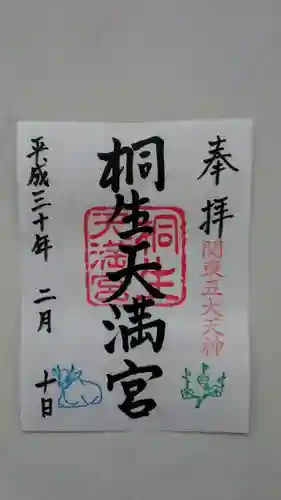 奉拝
関東五大天神
桐生天満宮
桐生
天満宮
平成三十年 二月 十日